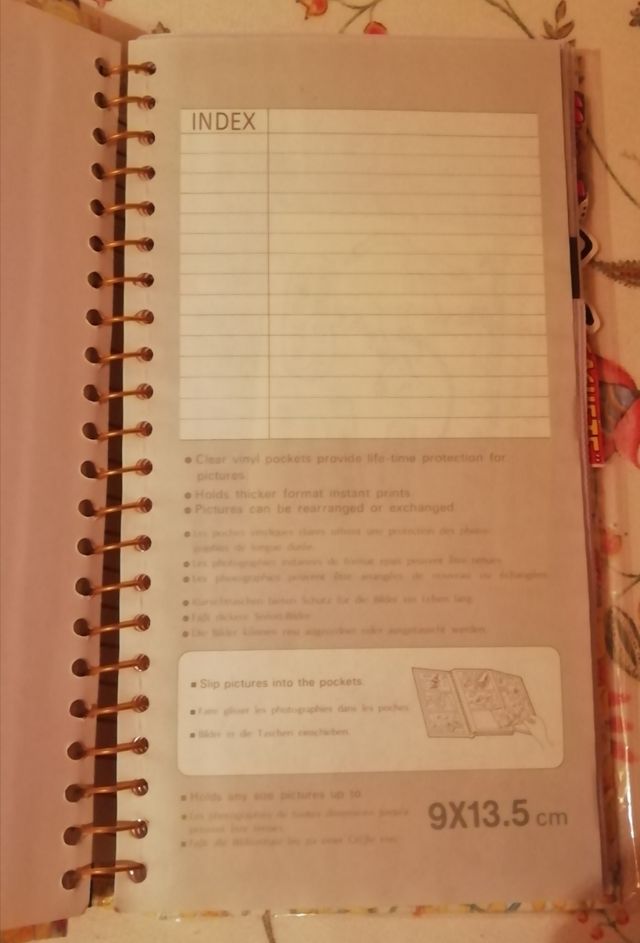 INDEX
Clear vinyl pockets provide life-time protection for
pictures
Holds thicker format instant prints
Pictures can be rearranged or exchanged
Les poches vinyliques claires offrent une protection des photo-
graphies de longue durée.
Les photographies instantnés du format épais peuvent être tenues
Les photographies peuvent être arrangées de nouveau ou échangées
Klarsichttaschen bieten Schutz für die Bilder ein Leben lang
Faßt dickere Sofort-Bilder
Die Bilder können neu angeordnet oder ausgetauscht werden
Slip pictures into the pockets.
Faire glisser les photographies dans les poches
Bilder in die Taschen einschieben.
Holds any size pictures up to
Les photographies de toutes dimensions jusqu'à
peuvent être tenues
9X13.5 cm